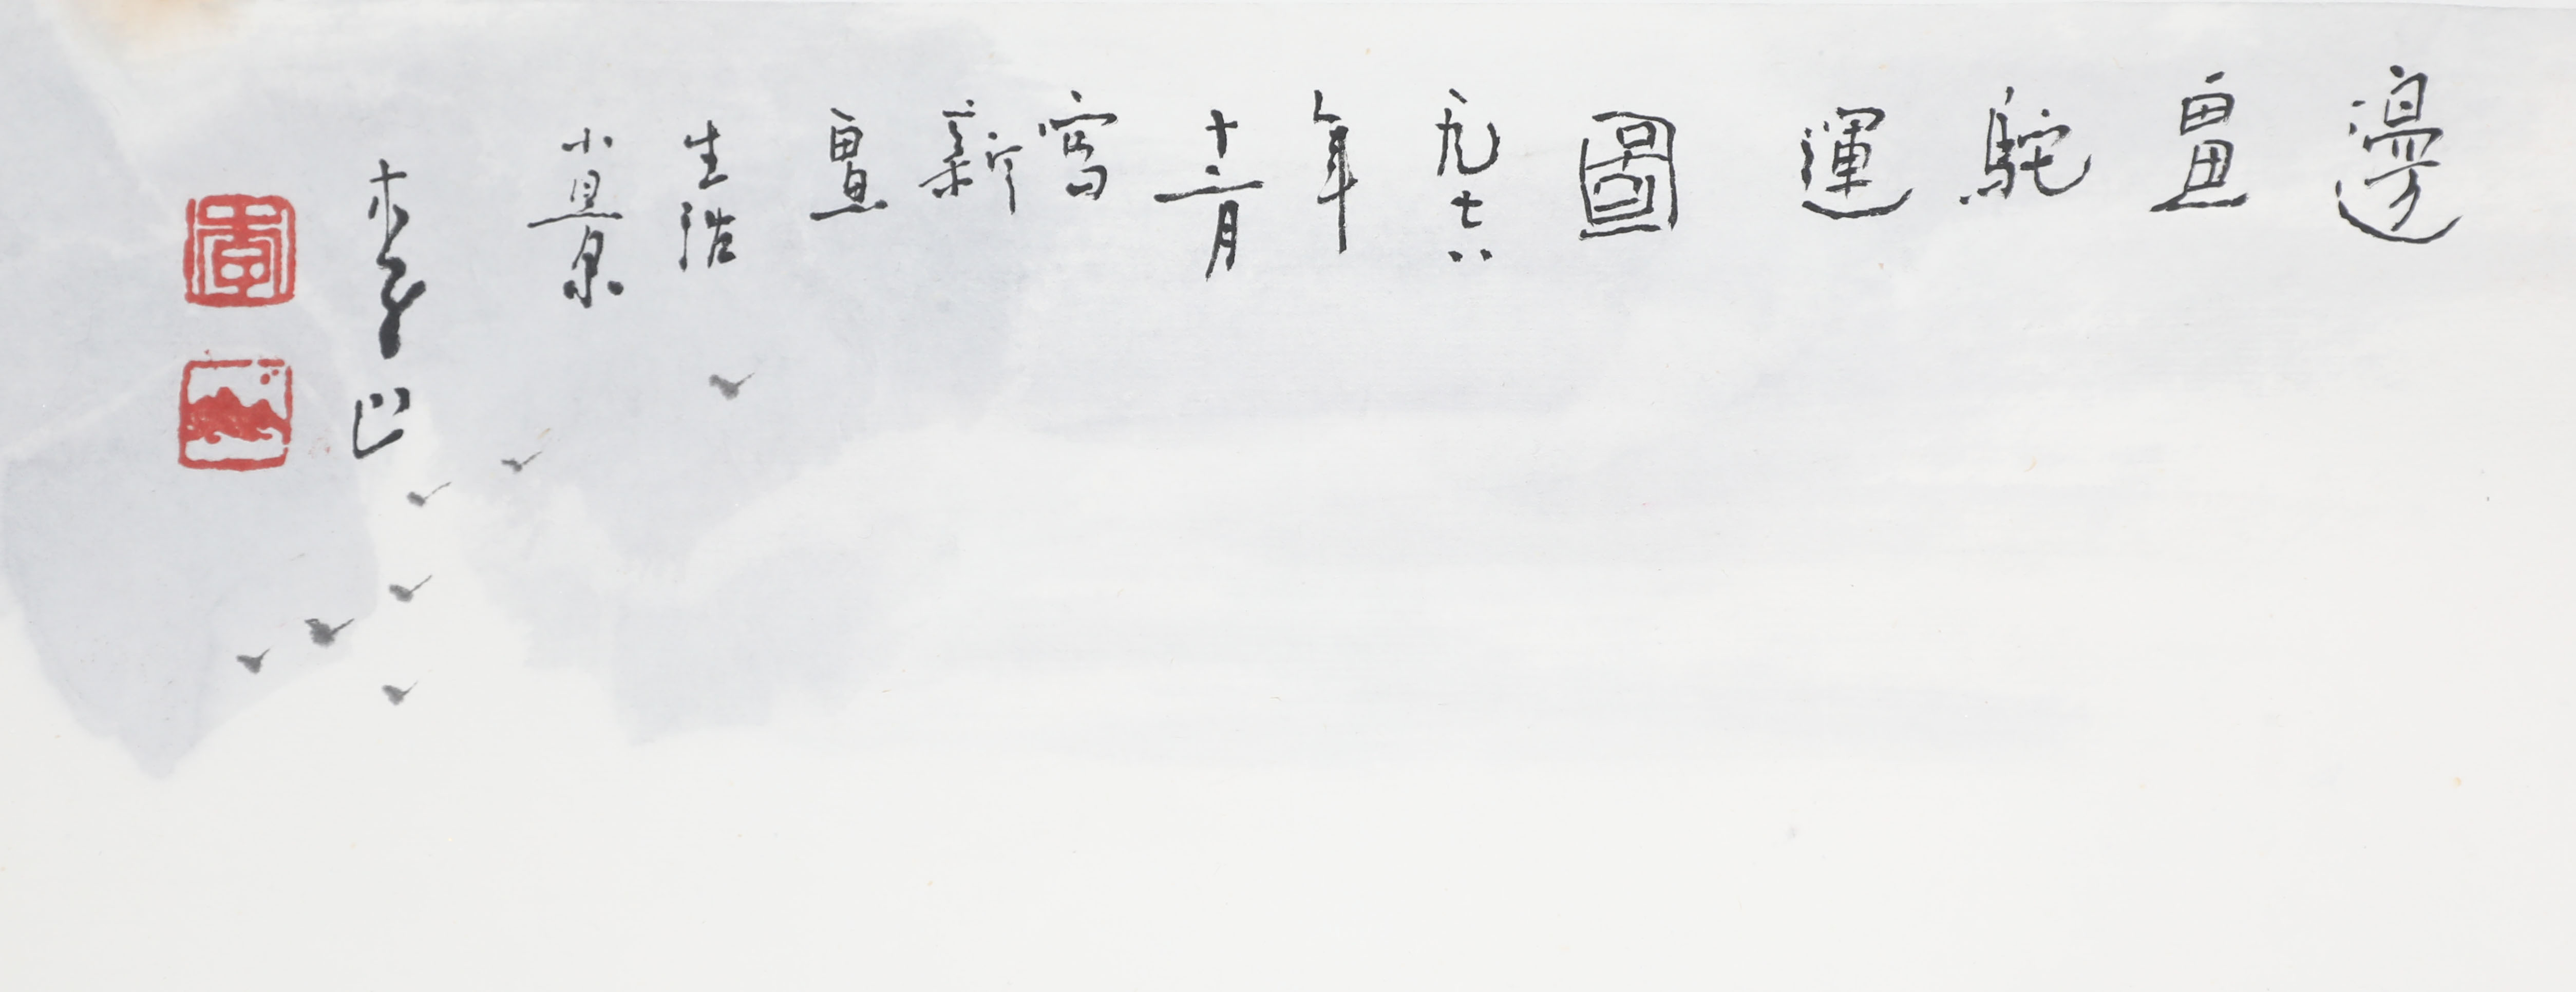 邊
畺
駝
運
圖
一九七八
年
十二月
寫
新
畺
生活
小景
李山
李